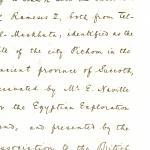 of Rameses 2, both from Tel-
el-Maskhuta, identified as the
site of the city Pithom in the
ancient province of Succoth,
presented by Mr E. Naville
for the Egyptian Exploration
Fund, and presented by the
Association to the British